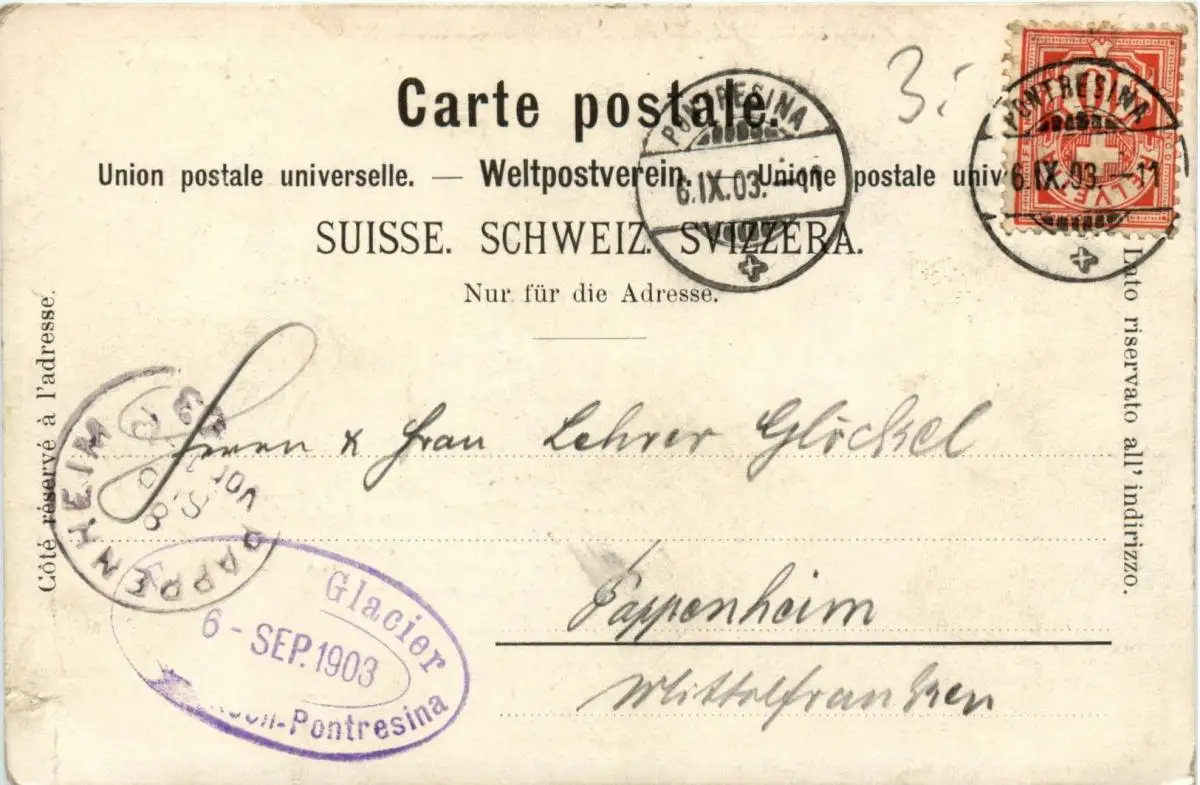 Carte postale.
3.-
Union postale universelle. — Weltpostverein. — Unione postale univ
SUISSE. SCHWEIZ. SVIZZERA.
Nur für die Adresse.
PONTRESINA
6.IX.03.-11
PONTRESINA
6.IX.03.-11
10
HELVETIA
Côté réservé à l'adresse.
Lato riservato all' indirizzo.
Herrn & Frau Lehrer Glöckel
Pappenheim
Mittelfranken
PAPPENHEIM
8
VOR
Glacier
6 - SEP. 1903
-Pontresina